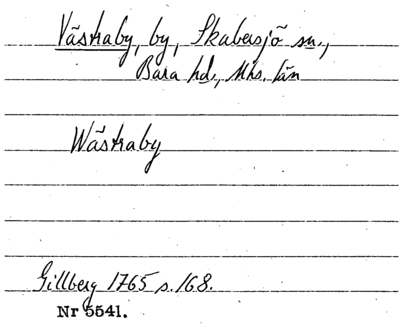 Västraby, by, Skabersjö sn.,
Bara hd., Mhs. län
Wästraby
Gillberg 1765 s. 168.
Nr 5541.